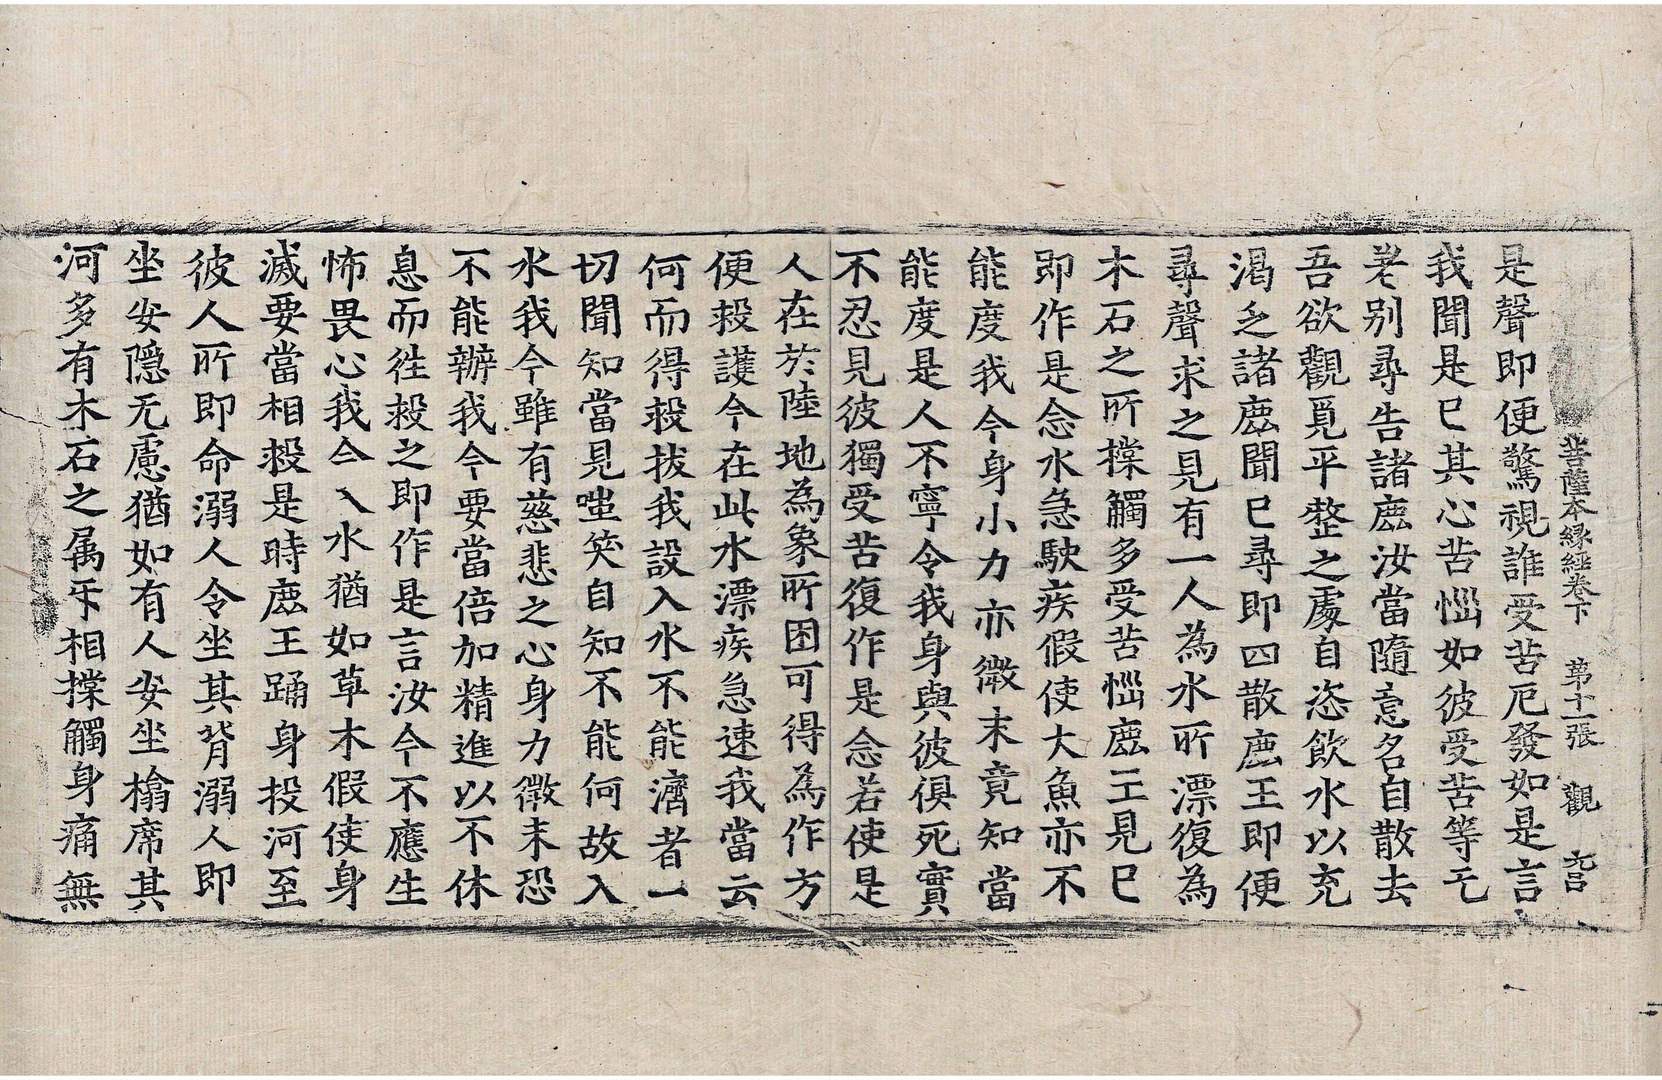 菩薩本緣經卷下　第十一張　觀
是聲即便驚視誰受苦厄發如是言
我聞是已其心苦惱如彼受苦等无
差别尋告諸鹿汝當隨意各自散去
吾欲觀覓平整之處自恣飲水以充
渴乏諸鹿聞已尋即四散鹿王即便
尋聲求之見有一人為水所漂復為
木石之所橖觸多受苦惱鹿王見已
即作是念水急駛疾假使大魚亦不
能度我今身小力亦微末竟知當
能度是人不寧令我身與彼俱死實
不忍見彼獨受苦復作是念若使是
人在於陸地為象所困可得為作方
便救護今在此水漂疾急速我當云
何而得救拔我設入水不能濟者一
切聞知當見嗤笑自知不能何故入
水我今雖有慈悲之心身力微末恐
不能辦我今要當倍加精進以不休
息而往救之即作是言汝今不應生
怖畏心我今入水猶如草木假使身
滅要當相救是時鹿王踊身投河至
彼人所即命溺人令坐其背溺人即
坐安隱无慮猶如有人安坐榻席其
河多有木石之属互相橖觸身痛無